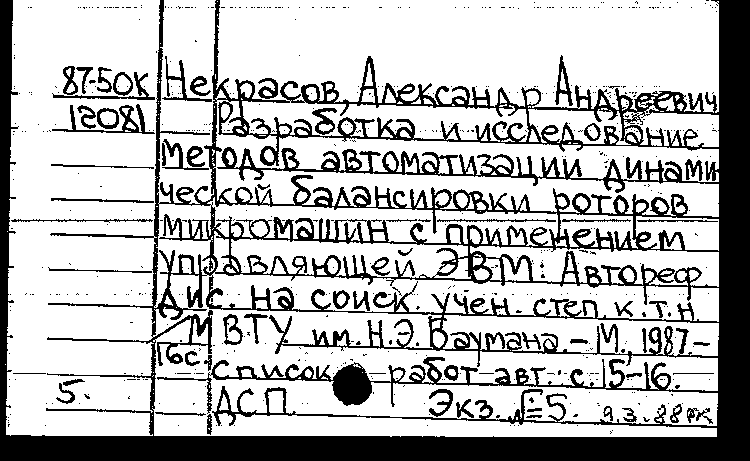 87-50К Некрасов, Александр Андреевич
12081 Разработка и исследование
методов автоматизации динами
ческой балансировки роторов
микромашин с применением
управляющей ЭВМ: Автореф
дис. на соиск. учен. степ. к.т.н.
МВТУ им. Н.Э. Баумана. – М., 1987. –
16с.
список работ авт.: с. 15-16.
5. ДСП Экз. №5. 9.3.88